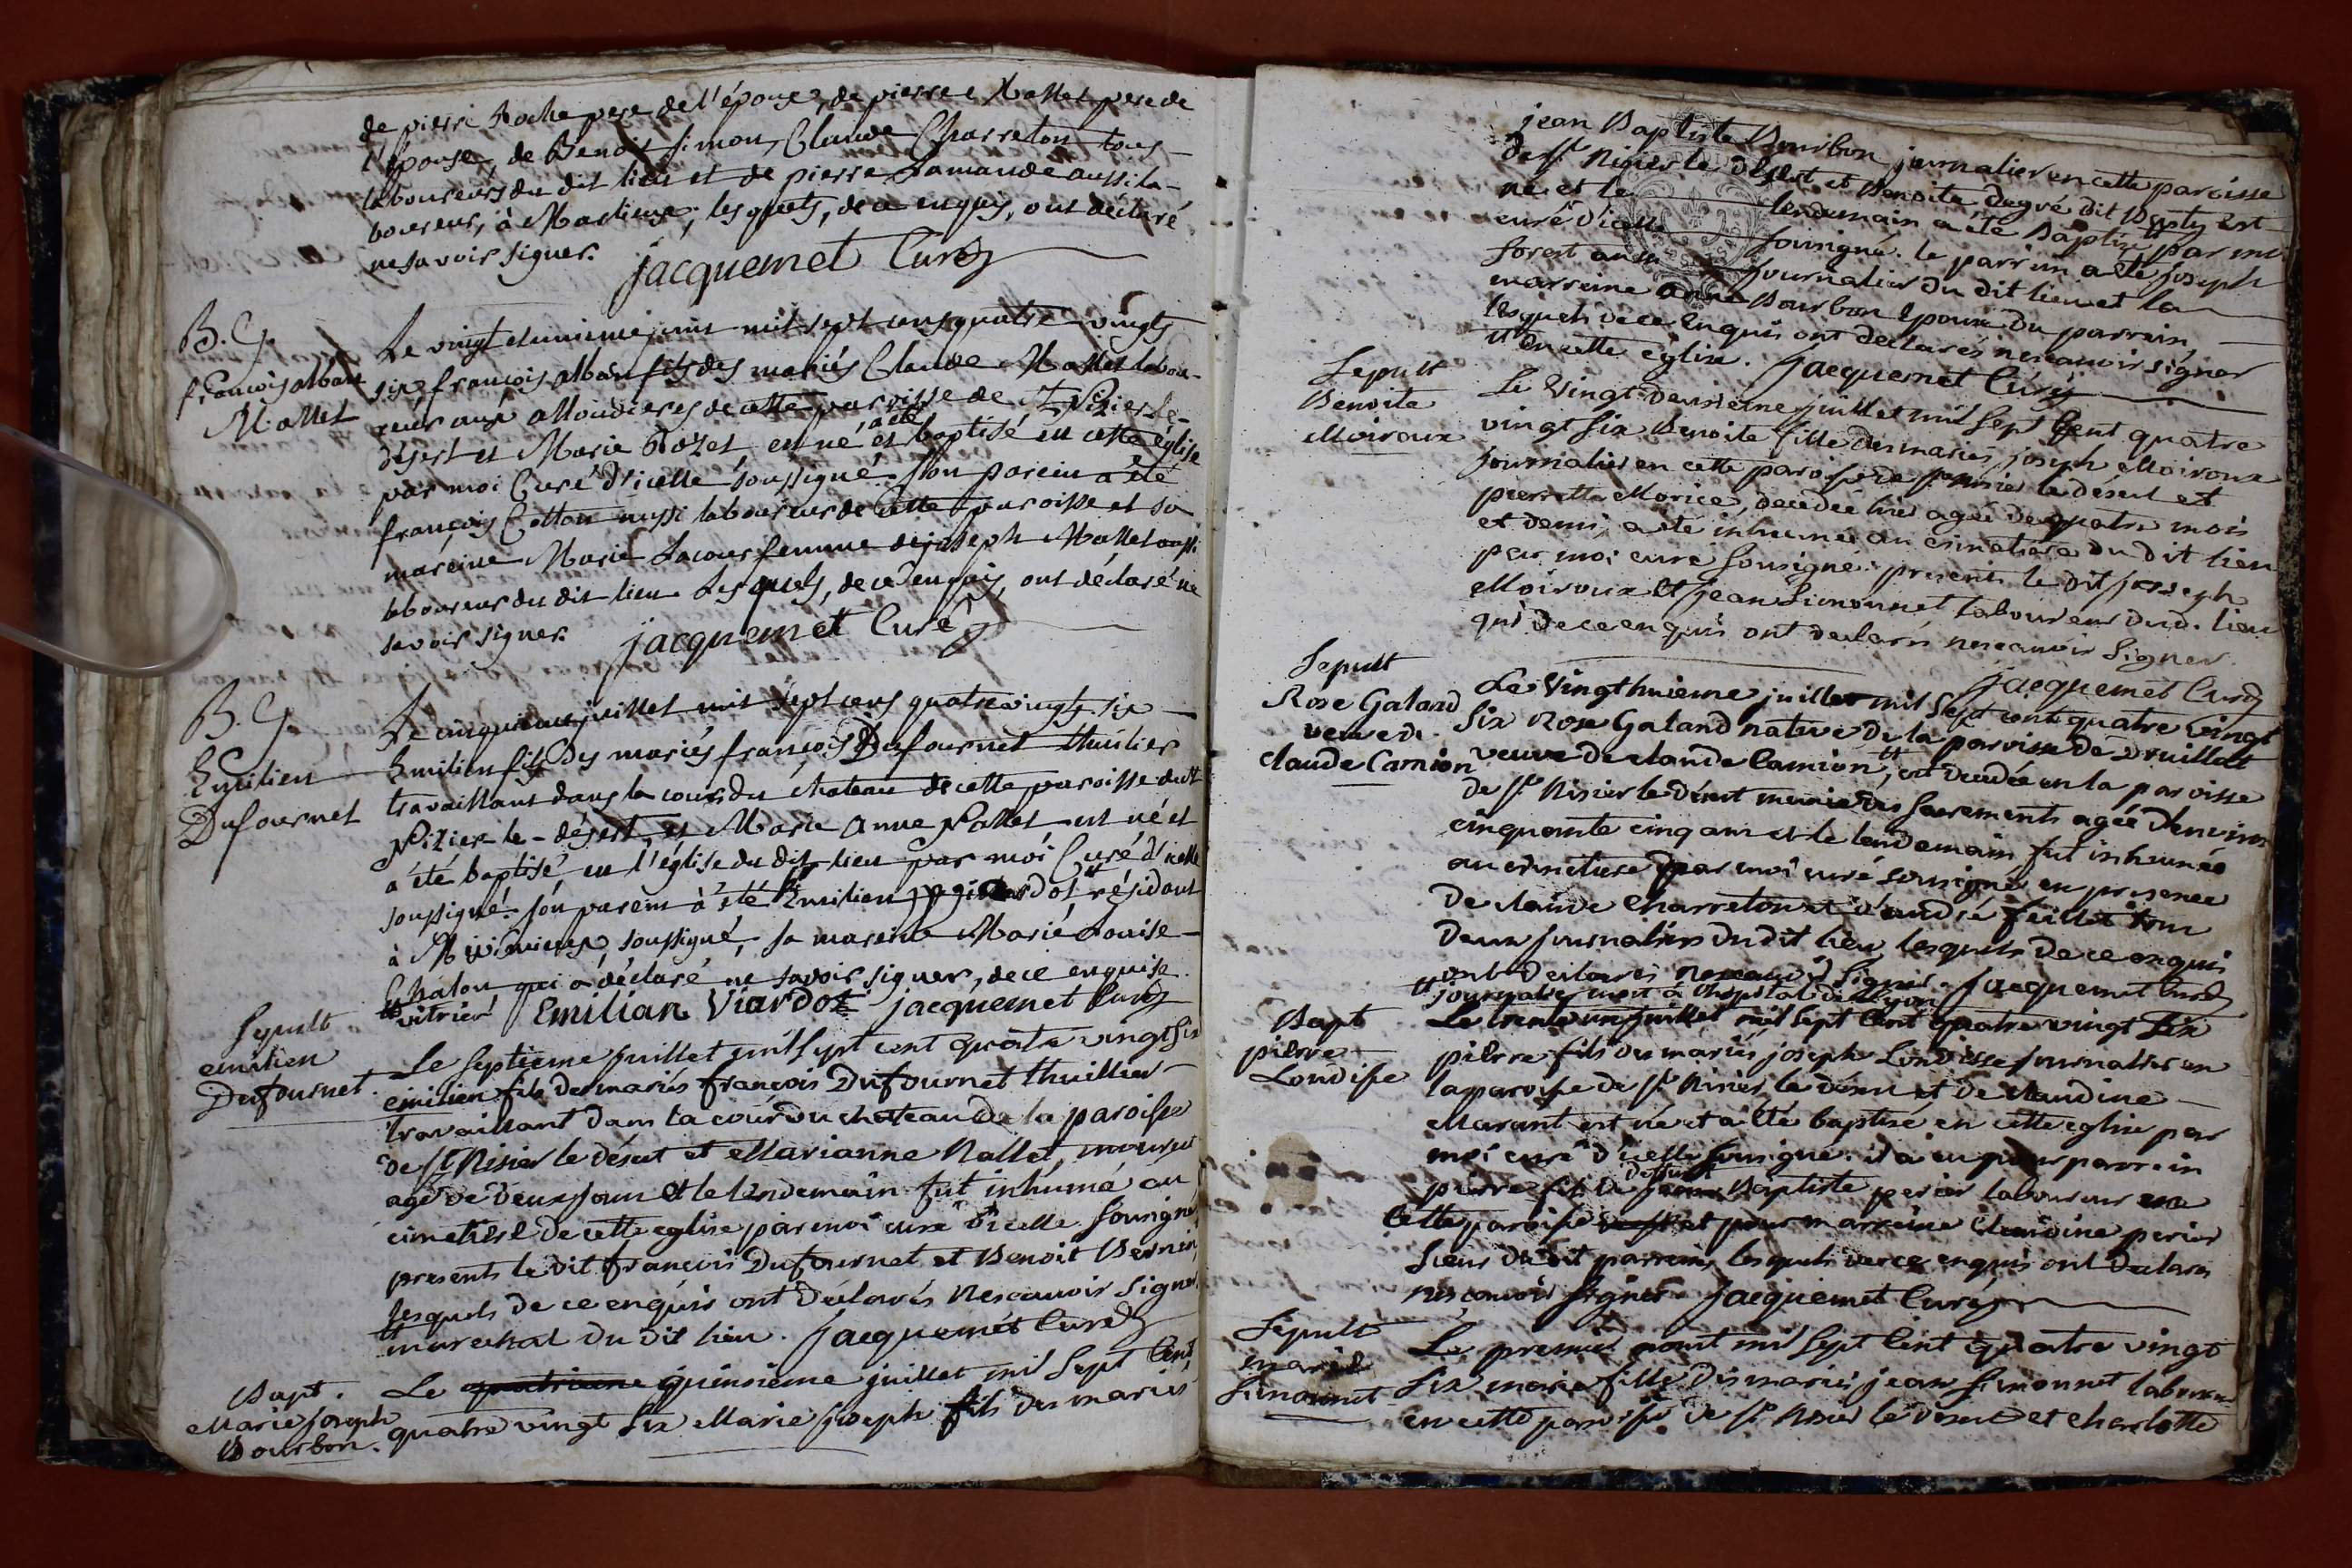 de pierre Roche pere de l'épouse, de pierre Mallet pere de
l'épouse, de Benoit simon, Claude Charreton tous
laboureurs du dit lieu et de pierre Lamande aussi la-
boureur, à Marlieux, lesquels, de ce enquis, ont déclaré
ne savoir signer. jacquemet Curé
B. G.
françois alban
Mallet
Le vingt et unieme juin mil sept cens quatre vingts
six françois alban fils des mariés Claude Mallet labou-
reur aux alloudieres de cette paroisse de St Nizier le-
désert et Marie Rozet, est né et a été baptisé en cette église
par moi Curé d'icelle soussigné. Son parein a été
françois Cotton aussi laboureur de Cette paroisse et sa
mareine Marie Lacour femme de joseph Mallet aussi
laboureur du dit lieu Lesquels, de ce enquis, ont déclaré ne
savoir signer. jacquemet Curé
B. G.
Emilien
Dufournet
Le cinquieme juillet mil sept cens quatre vingts six
Emilien fils des mariés françois Dufournet thuilier
travaillant dans la cour du chateau de cette paroisse de st
Nizier-le-désert, et Marie Anne Nallet est né et
a été baptisé en l'église du dit lieu par moi Curé d'icelle
soussigné. son parein a été Emilien Viardot résidant
à Meximieux, soussigné, sa mareine Marie Louise
Chalon qui a déclaré ne savoir signer, de ce enquise.
vitrier Emilian Viardot jacquemet Curé
Sepult
emilien
Dufournet.
Le septieme juillet mil sept cent quatre vingt six
emilien fils des mariés françois Dufournet thuillier
travaillant dans la cour du chateau de la paroisse
de st Nisier le désert et Marianne Nallet, mourut
agé de deux jours et le lendemain fut inhumé au
cimetiere de cette eglise par moi curé d'icelle sousigné
presents le dit françois Dufournet et Benoit Bernin
lesquels de ce enquis ont déclarés nescavoir signer
marechal du dit lieu. jacquemet Curé
Bapt.
Marie joseph
Bourbon.
Le quatrieme quinsieme juillet mil sept Cent
quatre vingt six Marie joseph fils des mariés
jean Baptiste Bourbon journalier en cette paroisse
de st Nisier le désert et Benoite dit est
né et le lendemain a été Baptisé par moi
curé d'icelle sousigné. le parrein a été joseph
forest aussi journalier du dit lieu et la
marreine anne Bourbon epouse du parrein
lesquels de ce enquis ont declarés nescavoir signer
en cette église. jacquemet Curé
Sepult
Benoite
Moiroux
Le vingt deuxieme juillet mil sept Cent quatre
vingt six Benoite fille des mariés joseph Moiroux
journalier en cette paroisse de st Nisier le désert et
pierrette Morice, decedée hier agée de quatre mois
et demi, a été inhumée au cimetiere du dit lieu
par moi curé sousigné. presents le dit joseph
Moiroux et jean Simonnet laboureur dud. lieu
qui de ce enquis ont declarés nescavoir signer.
jacquemet Curé
Sepult
Rose Galand
veuve de
claude Camion
Le vingt huitieme juillet mil sept cent quatre vingt
six Rose Galand native de la paroisse de Druillat
veuve de claude Camion, est decedée en la paroisse
de st Nisier le désert munie des sacrements agée d'environ
cinquante cinq ans et le lendemain fut inhumée
au cimetiere par moi curé sousigné en presence
de claude charreton et d'andré feillet tous
deux journaliers du dit lieu lesquels de ce enquis
ont declarés nescavoir signer. jacquemet Curé
journalier mort à l'hopital de Lyon
Bapt
pierre
Londisse
Le trente un juillet mil sept Cent quatre vingt six
pierre fils des mariés joseph Londisse journalier en
la paroisse de st Nisier le désert et de claudine
Marant est né et a été baptisé en cette eglise par
moi curé d'icelle sousigné. il a eu pour parrein
pierre fils de deffunt jean Baptiste perier laboureur en
cette paroisse et pour marreine claudine perier
soeur du dit parrein, lesquels de ce enquis ont declarés
nescavoir signer. jacquemet Curé
Sepult
marie
Simonnet
Le premier aoust mil sept Cent quatre vingt
six marie fille des mariés jean Simonnet laboureur
en cette paroisse de st Nisier le désert et charlotte